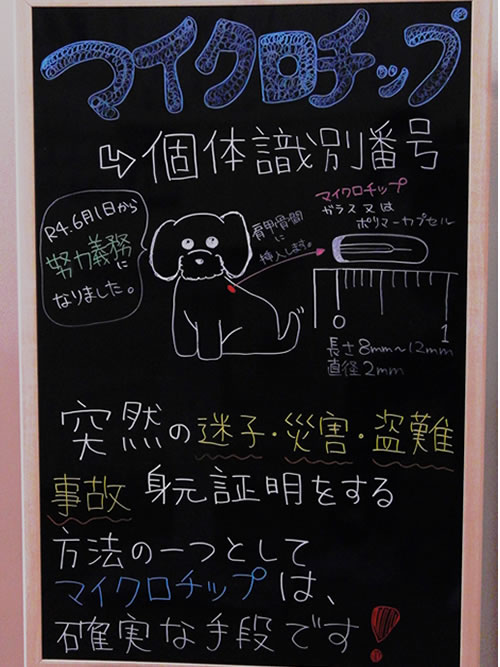 マイクロチップ
↳個体識別番号
R4.6月1日から
努力義務に
なりました。
肩甲骨間
に
挿入します。
マイクロチップ
ガラス又は
ポリマーカプセル
0 1
長さ8mm〜12mm
直径2mm
突然の迷子・災害・盗難
事故 身元証明をする
方法の一つとして
マイクロチップは、
確実な手段です!